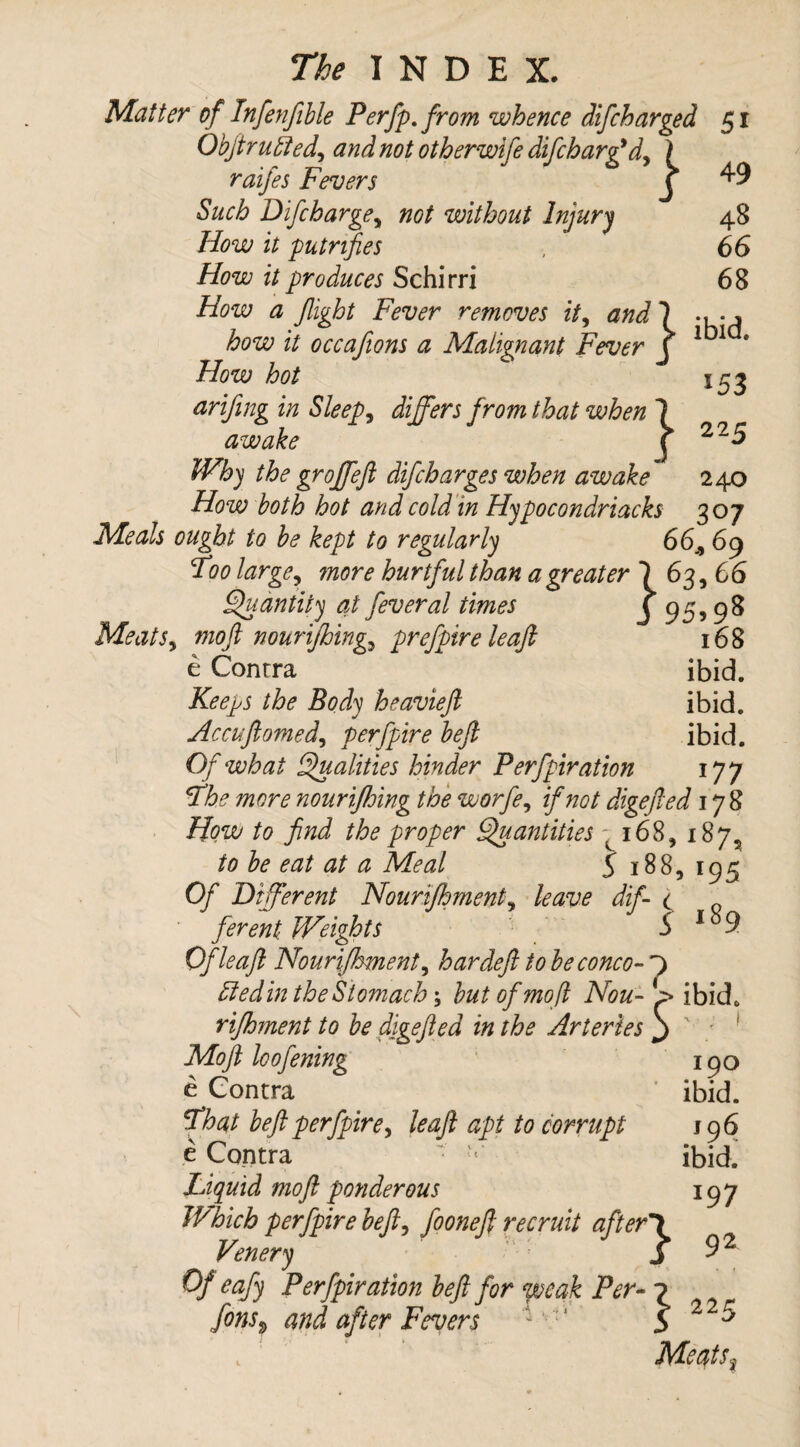 The INDEX.
Matter of Inſenſible Perſp. from whence diſcharged 51
Obſtructed, and not otherwiſe diſcharg'd, }
raiſes Fevers } 49
Such Diſcharge, not without Injury 48
How it putrifies 66
How it produces Schirri 68
How a ſlight Fever removes it, and }
how it occaſions a Malignant Fever } ibid.
How hot 153
ariſing in Sleep, differs from that when }
awake } 225
Why the groſſeſt diſcharges when awake 240
How both hot and cold in Hypocondriacks 307
Meals ought to be kept to regularly 66, 69
Too large, more hurtful than a greater } 63, 66
Quantity at ſeveral times } 95, 98
Meats, moſt nouriſhing, preſpire leaſt 168
è Contra ibid.
Keeps the Body heavieſt ibid.
Accuſtomed, perſpire beſt ibid.
Of what Qualities hinder Perſpiration 177
The more nouriſhing the worſe, if not digeſted 178
How to find the proper Quantities { 168, 187,
to be eat at a Meal } 188, 195
Of Different Nouriſhment, leave dif- {
ferent Weights } 189
Of leaſt Nouriſhment, hardeſt to be conco- }
cted in the Stomach; but of moſt Nou- } ibid.
riſhment to be digeſted in the Arteries }
Moſt looſening 190
è Contra ibid.
That beſt perſpire, leaſt apt to corrupt 196
è Contra ibid.
Liquid moſt ponderous 197
Which perſpire beſt, ſooneſt recruit after }
Venery } 92
Of eaſy Perſpiration beſt for weak Per- }
ſons, and after Fevers } 225
Meats,